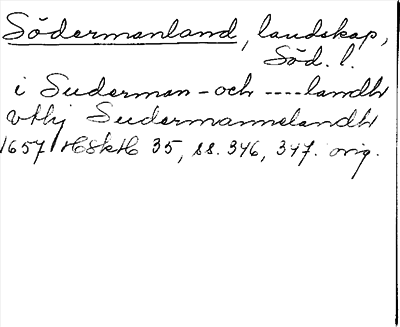 Södermanland, landskap,
Söd. l.
i Suderman - och ----landh
vthj Sudermannelandh
1657 HSkH 35, ss. 346, 347. orig.